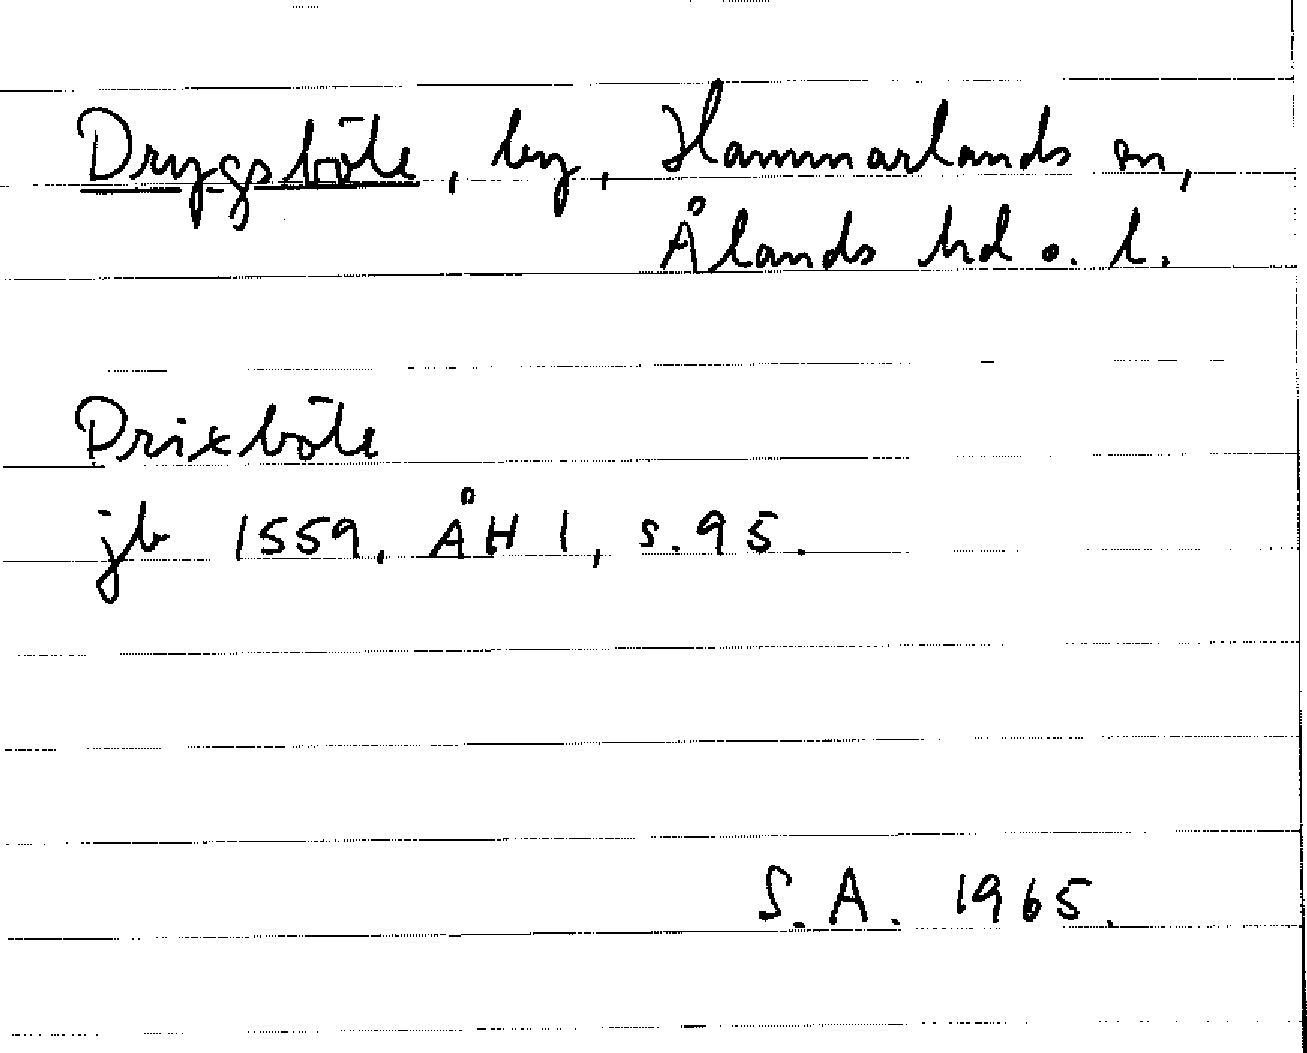 Drygsböle, by, Hammarlands sn,
Ålands hd o. l.
Drixböle
jb 1559, ÅH 1, s. 95.
S. A. 1965.